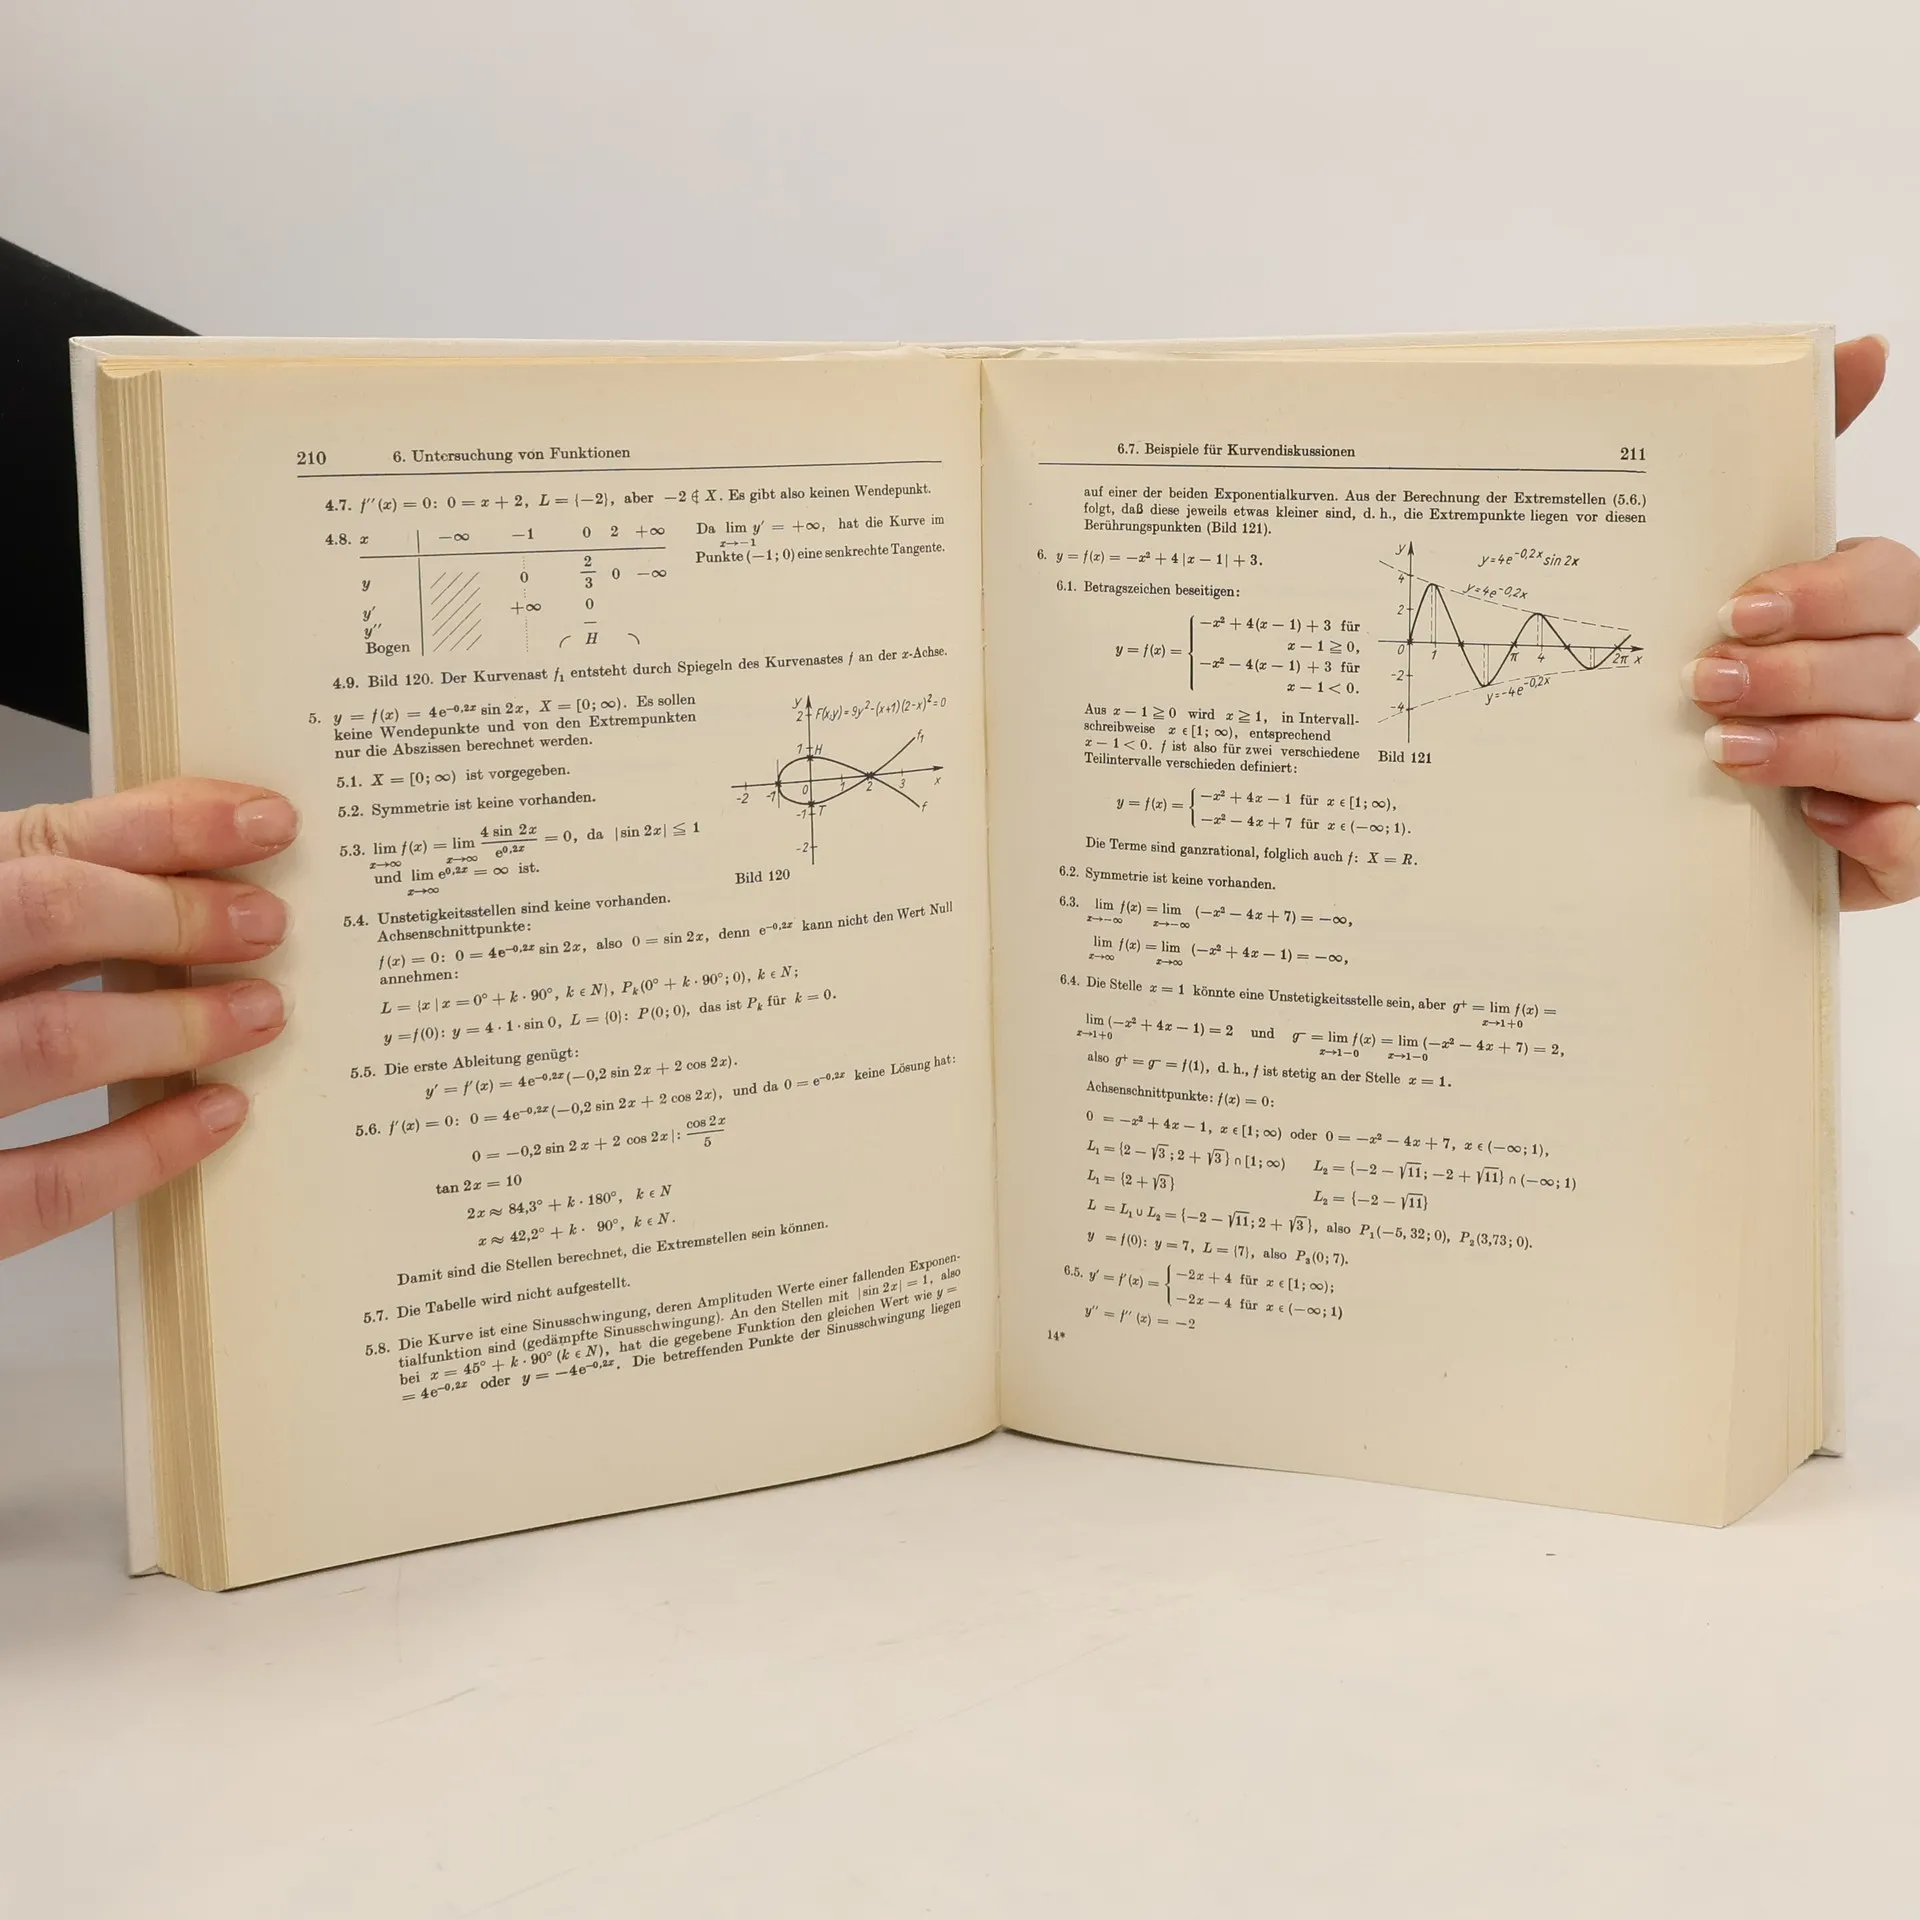 210 6. Untersuchung von Funktionen
4.7. f″(x) = 0: 0 = x + 2, L = {−2}, aber −2 ∉ X. Es gibt also keinen Wendepunkt.
4.8. x −∞ −1 0 2 +∞
y 0 2/3 0 −∞
y′ +∞ 0
y″ −
Bogen H
Da lim y′ = +∞, hat die Kurve im
x→−1
Punkte (−1; 0) eine senkrechte Tangente.
4.9. Bild 120. Der Kurvenast f₁ entsteht durch Spiegeln des Kurvenastes f an der x-Achse.
5. y = f(x) = 4e^−0,2x sin 2x, X = [0; ∞). Es sollen
keine Wendepunkte und von den Extrempunkten
nur die Abszissen berechnet werden.
5.1. X = [0; ∞) ist vorgegeben.
5.2. Symmetrie ist keine vorhanden.
5.3. lim f(x) = lim 4 sin 2x / e^0,2x = 0, da |sin 2x| ≦ 1
x→∞ x→∞
und lim e^0,2x = ∞ ist.
x→∞
y 2 F(x,y)=9y²-(x+1)(2-x)²=0
1 H f₁
-2 -1 0 1 2 3 x
-1 T f
-2
Bild 120
5.4. Unstetigkeitsstellen sind keine vorhanden.
Achsenschnittpunkte:
f(x) = 0: 0 = 4e^−0,2x sin 2x, also 0 = sin 2x, denn e^−0,2x kann nicht den Wert Null
annehmen:
L = {x | x = 0° + k · 90°, k ϵ N}, Pₖ(0° + k · 90°; 0), k ϵ N;
y = f(0): y = 4 · 1 · sin 0, L = {0}: P(0; 0), das ist Pₖ für k = 0.
5.5. Die erste Ableitung genügt:
y′ = f′(x) = 4e^−0,2x(−0,2 sin 2x + 2 cos 2x).
5.6. f′(x) = 0: 0 = 4e^−0,2x(−0,2 sin 2x + 2 cos 2x), und da 0 = e^−0,2x keine Lösung hat:
0 = −0,2 sin 2x + 2 cos 2x |: cos 2x / 5
tan 2x = 10
2x ≈ 84,3° + k · 180°, k ϵ N
x ≈ 42,2° + k · 90°, k ϵ N.
Damit sind die Stellen berechnet, die Extremstellen sein können.
5.7. Die Tabelle wird nicht aufgestellt.
5.8. Die Kurve ist eine Sinusschwingung, deren Amplituden Werte einer fallenden Exponen-
tialfunktion sind (gedämpfte Sinusschwingung). An den Stellen mit |sin 2x| = 1, also
bei x = 45° + k · 90° (k ϵ N), hat die gegebene Funktion den gleichen Wert wie y =
= 4e^−0,2x oder y = −4e^−0,2x. Die betreffenden Punkte der Sinusschwingung liegen
6.7. Beispiele für Kurvendiskussionen 211
auf einer der beiden Exponentialkurven. Aus der Berechnung der Extremstellen (5.6.)
folgt, daß diese jeweils etwas kleiner sind, d. h., die Extrempunkte liegen vor diesen
Berührungspunkten (Bild 121).
6. y = f(x) = −x² + 4 |x − 1| + 3.
6.1. Betragszeichen beseitigen:
y = f(x) = { −x² + 4(x − 1) + 3 für
x − 1 ≧ 0,
−x² − 4(x − 1) + 3 für
x − 1 < 0.
Aus x − 1 ≧ 0 wird x ≧ 1, in Intervall-
schreibweise x ϵ [1; ∞), entsprechend
x − 1 < 0. f ist also für zwei verschiedene
Teilintervalle verschieden definiert:
y y=4e^-0,2x sin 2x
4 y=4e^-0,2x
2
0 1 π 4 2π x
-2
y=-4e^-0,2x
-4
Bild 121
y = f(x) = { −x² + 4x − 1 für x ϵ [1; ∞),
−x² − 4x + 7 für x ϵ (−∞; 1).
Die Terme sind ganzrational, folglich auch f: X = R.
6.2. Symmetrie ist keine vorhanden.
6.3. lim f(x) = lim (−x² − 4x + 7) = −∞,
x→−∞ x→−∞
lim f(x) = lim (−x² + 4x − 1) = −∞,
x→∞ x→∞
6.4. Die Stelle x = 1 könnte eine Unstetigkeitsstelle sein, aber g⁺ = lim f(x) =
x→1+0
lim (−x² + 4x − 1) = 2 und g⁻ = lim f(x) = lim (−x² − 4x + 7) = 2,
x→1+0 x→1−0 x→1−0
also g⁺ = g⁻ = f(1), d. h., f ist stetig an der Stelle x = 1.
Achsenschnittpunkte: f(x) = 0:
0 = −x² + 4x − 1, x ϵ [1; ∞) oder 0 = −x² − 4x + 7, x ϵ (−∞; 1),
L₁ = {2 − √3; 2 + √3} ∩ [1; ∞) L₂ = {−2 − √11; −2 + √11} ∩ (−∞; 1)
L₁ = {2 + √3} L₂ = {−2 − √11}
L = L₁ ∪ L₂ = {−2 − √11; 2 + √3}, also P₁(−5,32; 0), P₂(3,73; 0).
y = f(0): y = 7, L = {7}, also P₃(0; 7).
6.5. y′ = f′(x) = { −2x + 4 für x ϵ [1; ∞);
−2x − 4 für x ϵ (−∞; 1)
y″ = f″(x) = −2
14*